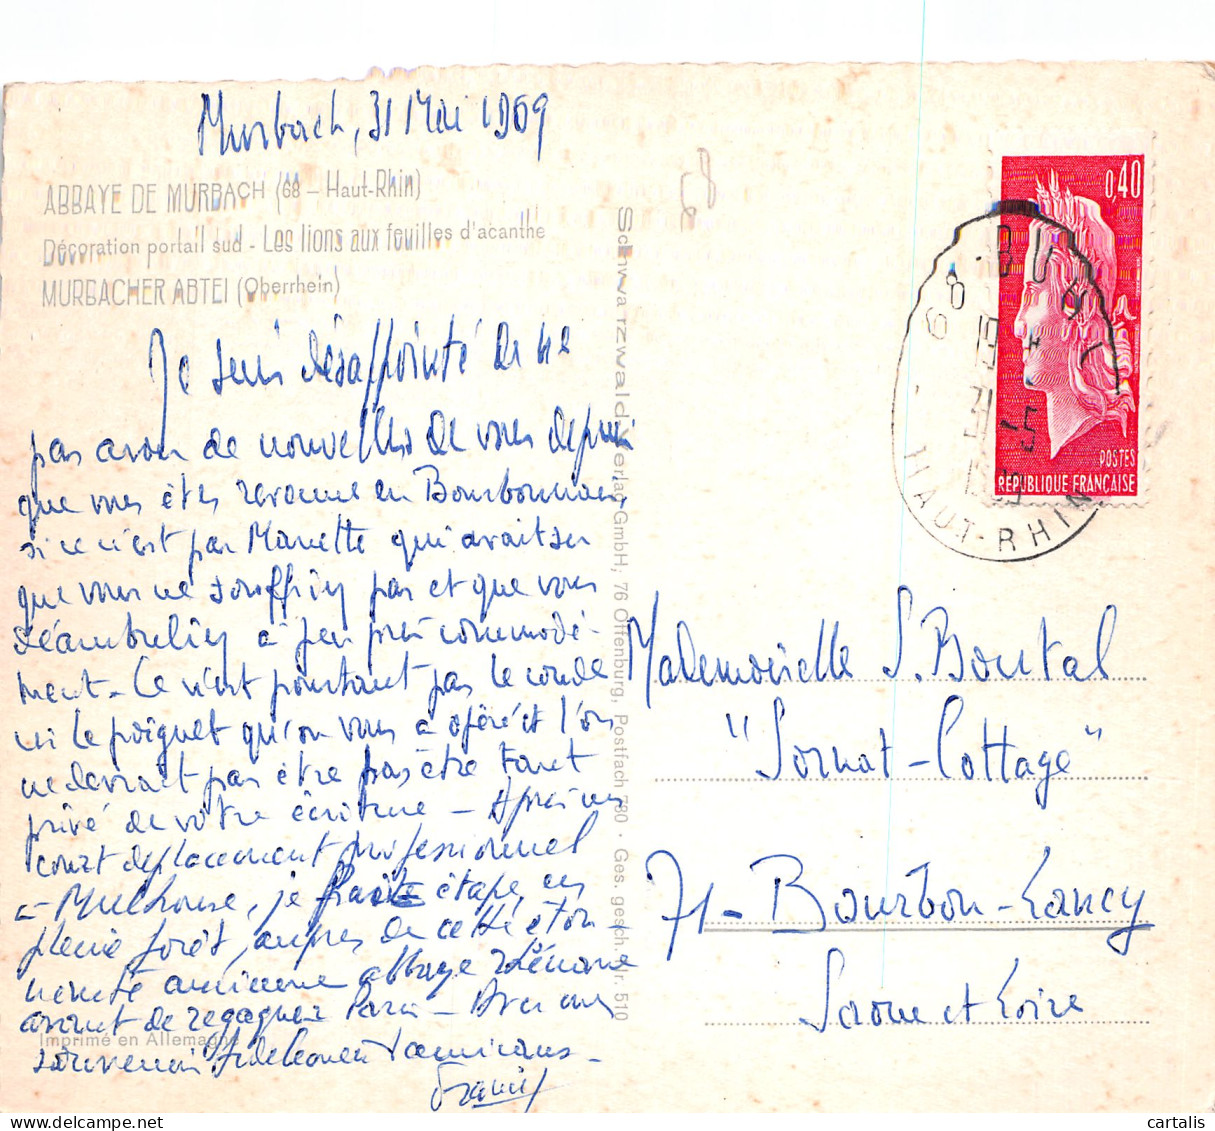 Murbach, 31 Mai 1969
ABBAYE DE MURBACH (68 – Haut-Rhin)
Décoration portail sud - Les lions aux feuilles d'acanthe
MURBACHER ABTEI (Oberrhein)
Je suis désappointé de ne
pas avoir de nouvelles de vous depuis
que vous êtes revenue en Bourbonnais
si ce n'est par Manette qui avait su
que vous ne souffriez pas et que vous
déambuliez à peu près commodé-
ment - Ce n'est pourtant pas le coude
ni le poignet qu'on vous a opéré et l'on
ne devrait pas être pas être tant
privé de votre écriture - Après un
court déplacement professionnel
à Mulhouse, je fais étape, en
pleine forêt, auprès de cette éton-
nante ancienne abbaye rhénane
avant de regagner Paris - Avec mon
souvenir fidèlement amical
Schwarzwald Verlag GmbH, 76 Offenburg, Postfach 780 · Ges. gesch. Nr. 510
Imprimé en Allemagne
68
0,40
POSTES
REPUBLIQUE FRANÇAISE
68 - BUHL
19 H
31 - 5
1969
HAUT-RHIN
Mademoiselle S. Boutal
"Sornat-Cottage"
71 - Bourbon-Lancy
Saône et Loire
cartalis